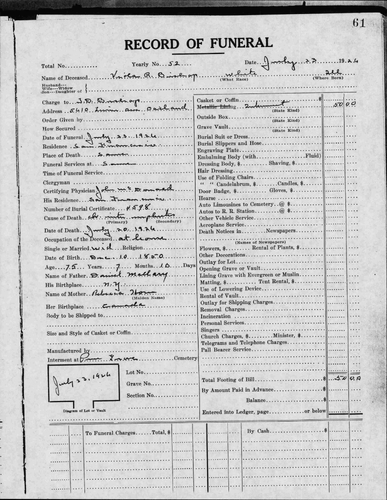 61
RECORD OF FUNERAL
Total No. Yearly No. 52 Date July 23 1926
Name of Deceased white Ill
(What Race) (Where Born)
Husband—
Wife—Widow
Son—Daughter of
Charge to
Address 5410 Ave Oakland
Order Given by
How Secured
Date of Funeral July 23 1926
Residence San Francisco
Place of Death Same
Funeral Services at Same
Time of Service
Clergyman
Certifying Physician John
His Residence San Francisco
Number of Burial Certificate 4598
Cause of Death
(Primary) (Secondary)
Date of Death July 20 1926
Occupation of the Deceased at home
Single or Married Wid Religion
Date of Birth Dec. 10 1850
Age 75 Years 7 Months 10 Days
Name of Father Daniel
His Birthplace N.Y.
Name of Mother Rebecca
(Maiden Name)
Her Birthplace Canada
Body to be Shipped to
Size and Style of Casket or Coffin
Manufactured by
Interment at Cemetery
Lot No.
Grave No.
Section No.
July 23, 1926
Diagram of Lot or Vault
Casket or Coffin
Metallic Lined $ 50 00
(State Kind)
Outside Box
(State Kind)
Grave Vault
(State Kind)
Burial Suit or Dress
Burial Slippers and Hose
Engraving Plate
Embalming Body (with Fluid)
Dressing Body, $ Shaving, $
Hair Dressing
Use of Folding Chairs
" " Candelabrum, $ Candles, $
Door Badge, $ Gloves, $
Hearse
Auto Limousines to Cemetery @ $
Autos to R. R. Station @ $
Other Vehicle Service
Aeroplane Service
Death Notices in Newspapers
(Names of Newspapers)
Flowers, $ Rental of Plants, $
Other Decorations
Outlay for Lot
Opening Grave or Vault
Lining Grave with Evergreen or Muslin
Matting, $ Tent Rental, $
Use of Lowering Device
Rental of Vault
Outlay for Shipping Charges
Removal Charges
Incineration
Personal Services
Singers
Church Charges, $ Minister, $
Telegrams and Telephone Charges
Pall Bearer Service
Total Footing of Bill $ 50 00
By Amount Paid in Advance $
Balance $
Entered into Ledger, page or below
To Funeral Charges Total, $
By Cash $